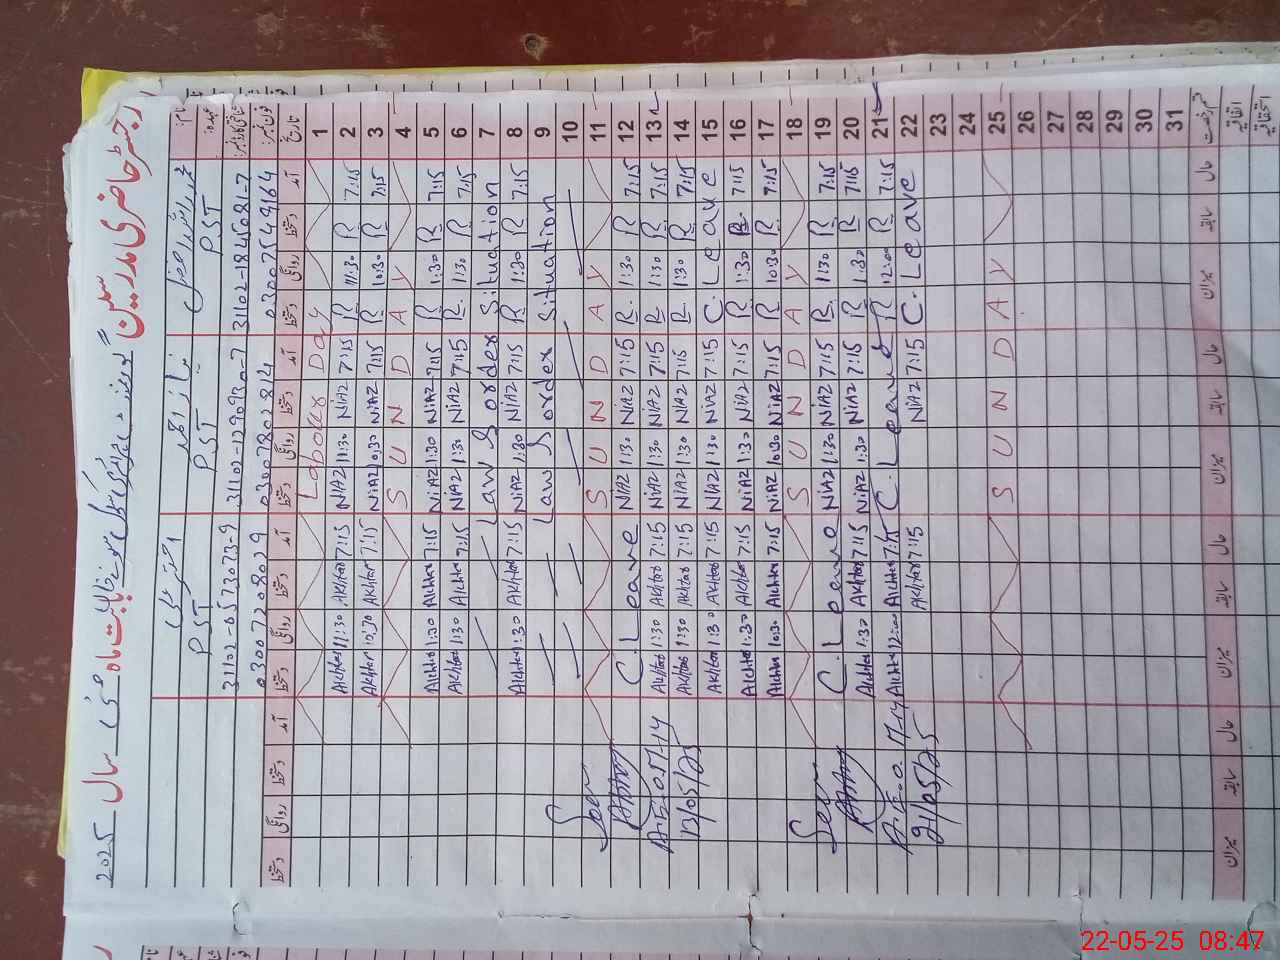 رجسٹر حاضری مدرسین
سال 2025
نام:
عہدہ:
PST
PST
PST
31102-1845681-7
31102-1290930-7
31102-0573073-9
03007549164
03007802814
03007208029
تاریخ آمد دستخط روانگی دستخط آمد دستخط روانگی دستخط آمد دستخط روانگی دستخط آمد دستخط روانگی دستخط
1 Labour Day
2 7:15 R 11:30 R 7:15 NiAZ 11:30 NiAZ 7:15 Akhtar 11:30 Akhtar
3 7:15 R 10:30 R 7:15 NiAZ 10:30 NiAZ 7:15 Akhtar 10:30 Akhtar
4 S U N D A Y
5 7:15 R 1:30 R 7:15 NiAZ 1:30 NiAZ 7:15 Akhtar 1:30 Akhtar
6 7:15 R 1:30 R 7:15 NiAZ 1:30 NiAZ 7:15 Akhtar 1:30 Akhtar
7 Law & order Situation
8 7:15 R 1:30 R 7:15 NiAZ 1:30 NiAZ 7:15 Akhtar 1:30 Akhtar
9 Law & order Situation
10
11 S U N D A Y
12 7:15 R 1:30 R 7:15 NiAZ 1:30 NiAZ C. Leave
13 7:15 R 1:30 R 7:15 NiAZ 1:30 NiAZ 7:15 Akhtar 1:30 Akhtar
14 7:15 R 1:30 R 7:15 NiAZ 1:30 NiAZ 7:15 Akhtar 1:30 Akhtar
15 C. Leave 7:15 NiAZ 1:30 NiAZ 7:15 Akhtar 1:30 Akhtar
16 7:15 R 1:30 R 7:15 NiAZ 1:30 NiAZ 7:15 Akhtar 1:30 Akhtar
17 7:15 R 10:30 R 7:15 NiAZ 10:30 NiAZ 7:15 Akhtar 10:30 Akhtar
18 S U N D A Y
19 7:15 R 1:30 R 7:15 NiAZ 1:30 NiAZ C. Leave
20 7:15 R 1:30 R 7:15 NiAZ 1:30 NiAZ 7:15 Akhtar 1:30 Akhtar
21 7:15 R 12:00 R C. Leave 7:15 Akhtar 12:00 Akhtar
22 C. Leave 7:15 NiAZ 7:15 Akhtar
23
24
25 S U N D A Y
26
27
28
29
30
31
Seen
A.E.O. M-14
13/05/25
Seen
A.E.O. M-14
21/05/25
قسم رخصت حال سابقہ میزان حال سابقہ میزان حال سابقہ میزان حال سابقہ میزان
اتفاقیہ
استحقاقیہ
22-05-25 08:47